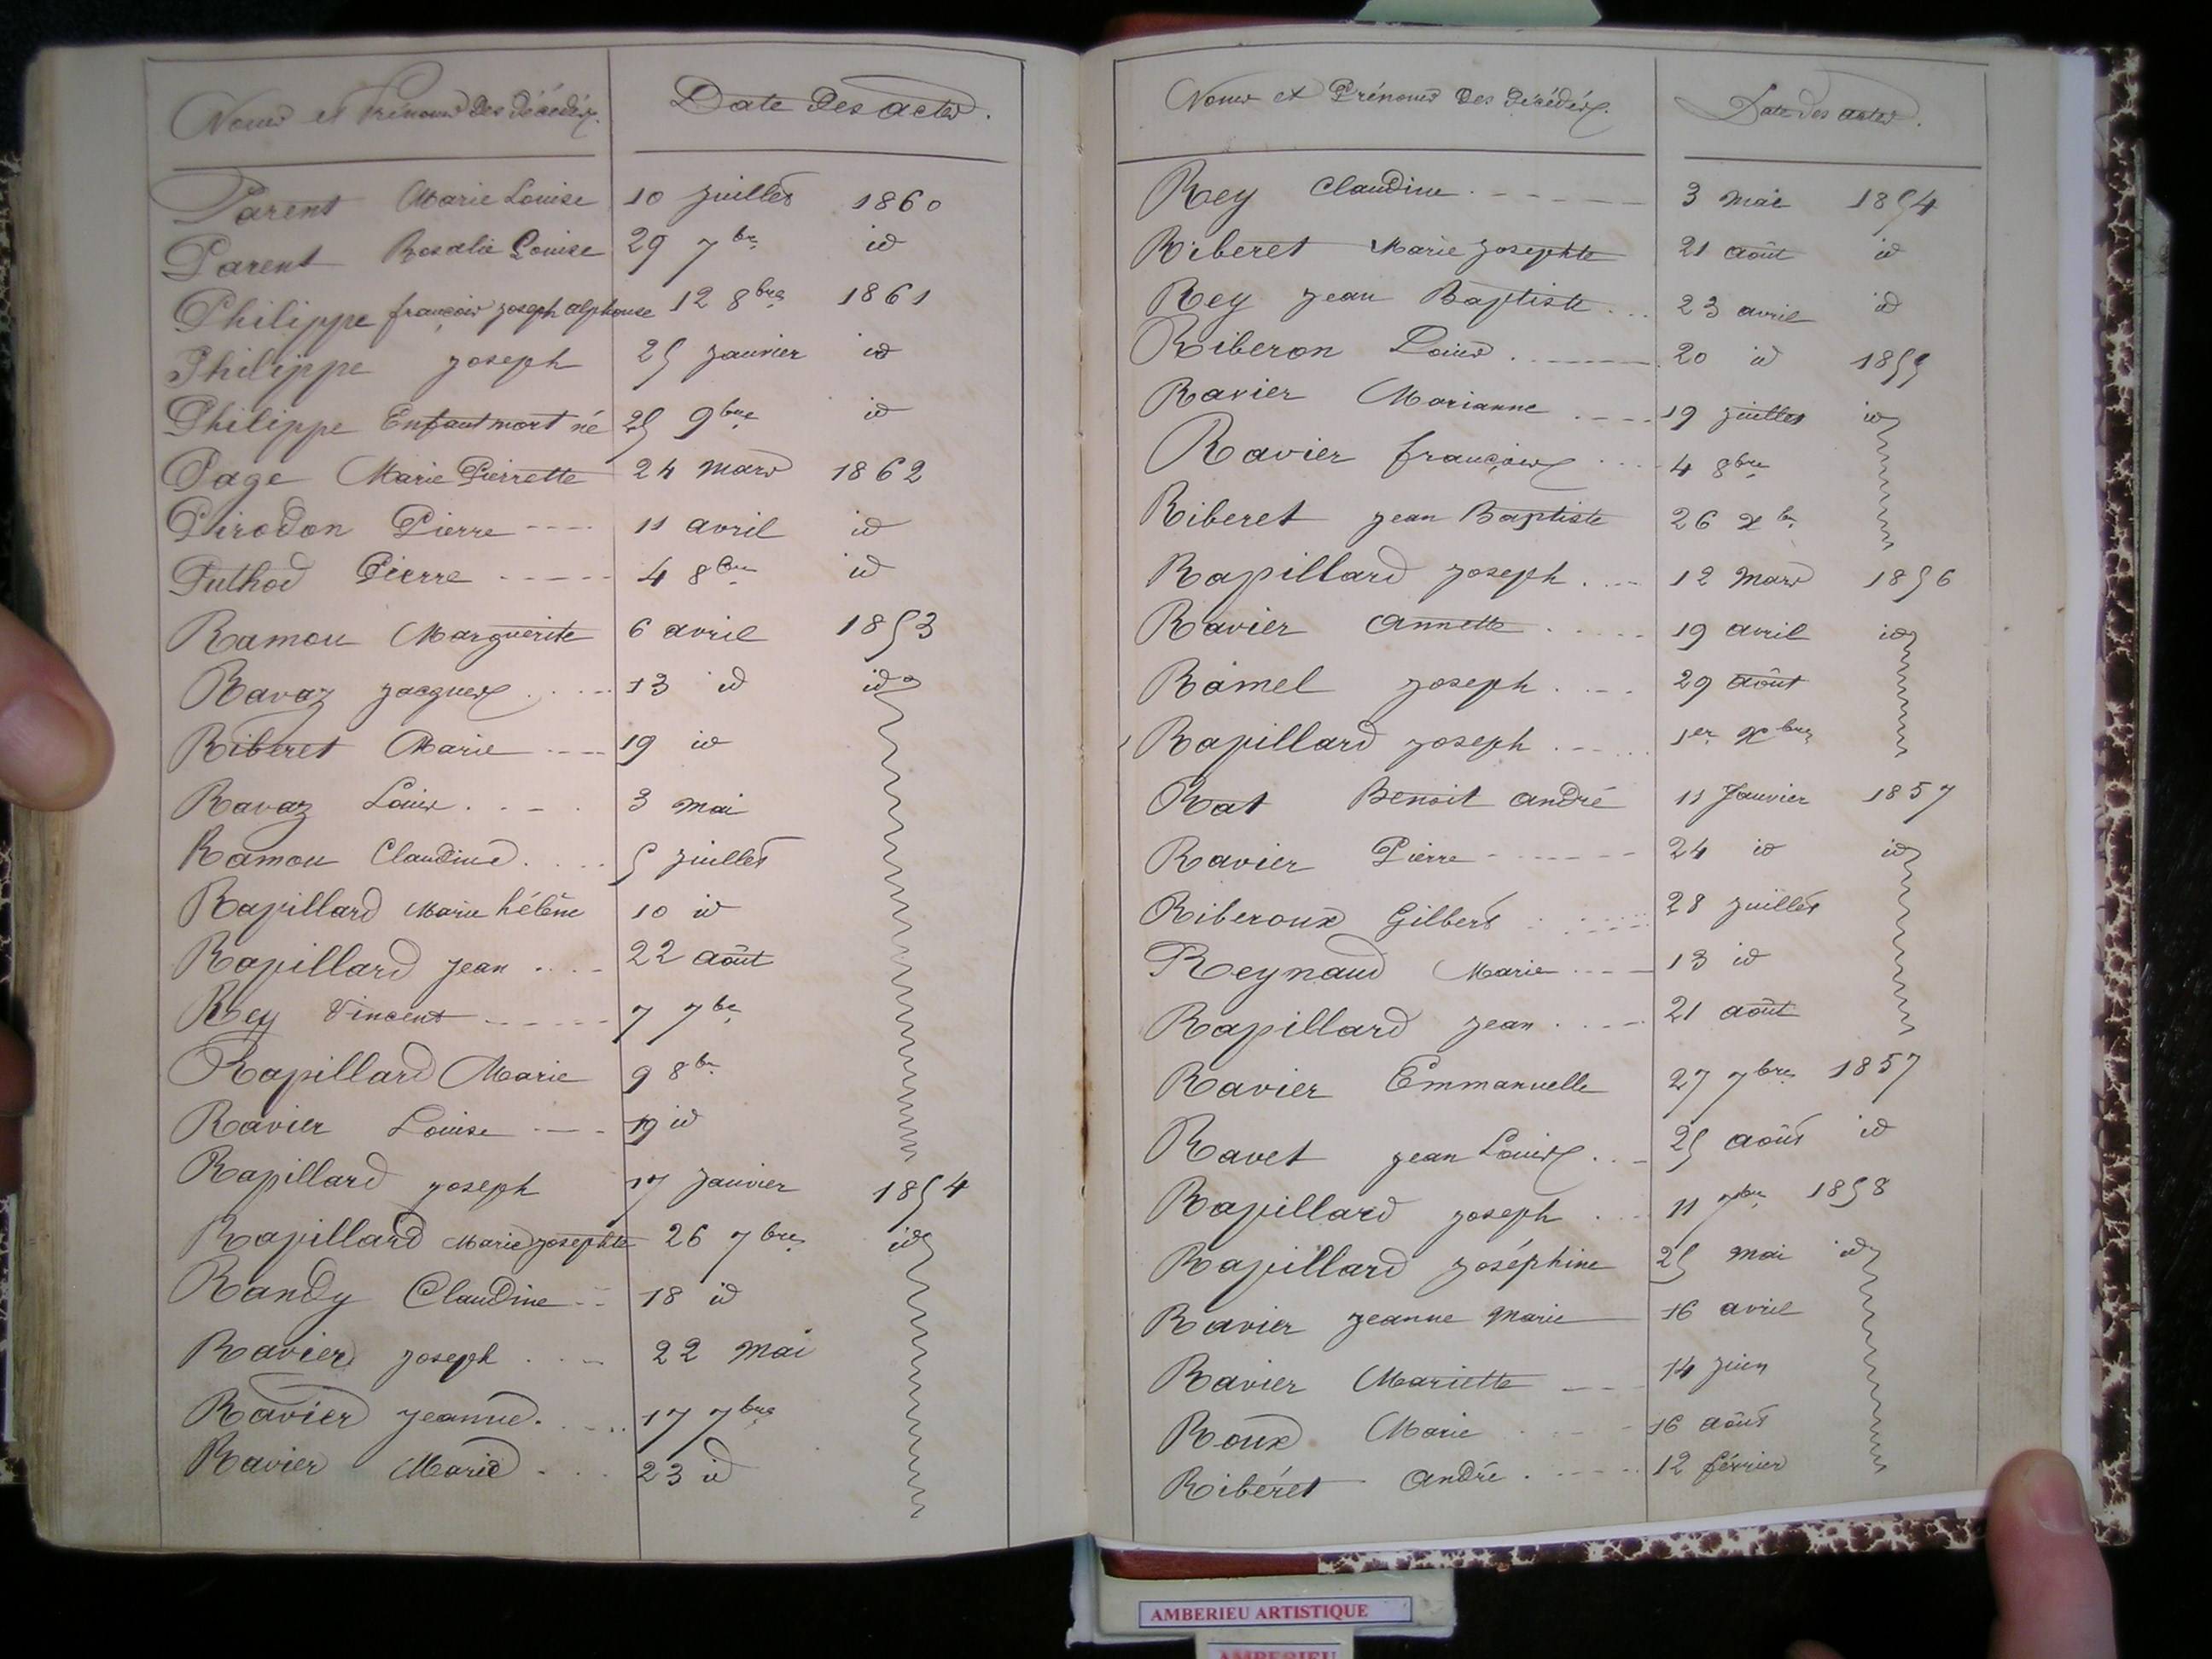 Noms et Prénoms des décédés. Date des actes.
Parent Marie Louise 10 juillet 1860
Parent Rosalie Louise 29 7bre id
Philippe françois joseph alphonse 12 8bre 1861
Philippe joseph 25 janvier id
Philippe Enfant mort né 25 9bre id
Page Marie Pierrette 24 mars 1862
Pirodon Pierre 11 avril id
Puthod Pierre 4 8bre id
Ramou Marguerite 6 avril 1853
Ravaz jacques 13 id id
Riberet Marie 19 id
Ravaz Louis 3 mai
Ramou Claudine 5 juillet
Rapillard Marie hélène 10 id
Rapillard jean 22 août
Rey Vincent 7 7bre
Rapillard Marie 9 8bre
Ravier Louise 19 id
Rapillard joseph 17 janvier 1854
Rapillard Marie josephte 26 7bre id
Randy Claudine 18 id
Ravier joseph 22 mai
Ravier jeanne 17 7bre
Ravier Marie 23 id
Noms et Prénoms des décédés. Date des actes.
Rey Claudine 3 mai 1854
Riberet Marie josephte 21 août id
Rey jean Baptiste 23 avril id
Riberon Louis 20 id 1855
Ravier Marianne 19 juillet id
Ravier françois 4 8bre
Riberet jean Baptiste 26 xbre
Rapillard joseph 12 mars 1856
Ravier annette 19 avril id
Ramel joseph 29 août
Rapillard joseph 1er xbre
Rat Benoit andré 11 Janvier 1857
Ravier Pierre 24 id id
Riberoux Gilbert 28 juillet
Reynaud Marie 13 id
Rapillard jean 21 août
Ravier Emmanuelle 27 7bre 1857
Ravet jean Louis 25 août id
Rapillard joseph 11 7bre 1858
Rapillard joséphine 25 mai id
Ravier jeanne marie 16 avril
Ravier Mariette 14 juin
Roux Marie 16 août
Ribéret andré 12 février
AMBERIEU ARTISTIQUE
AMBERIEU